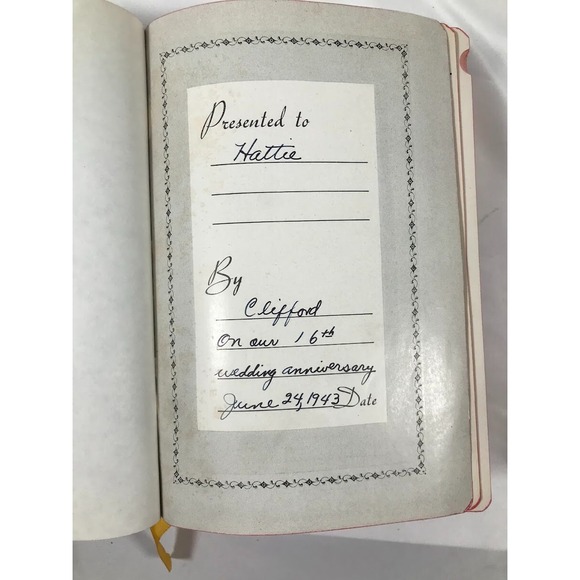 Presented to
Hattie
By
Clifford
On our 16th
wedding anniversary
June 24, 1943 Date